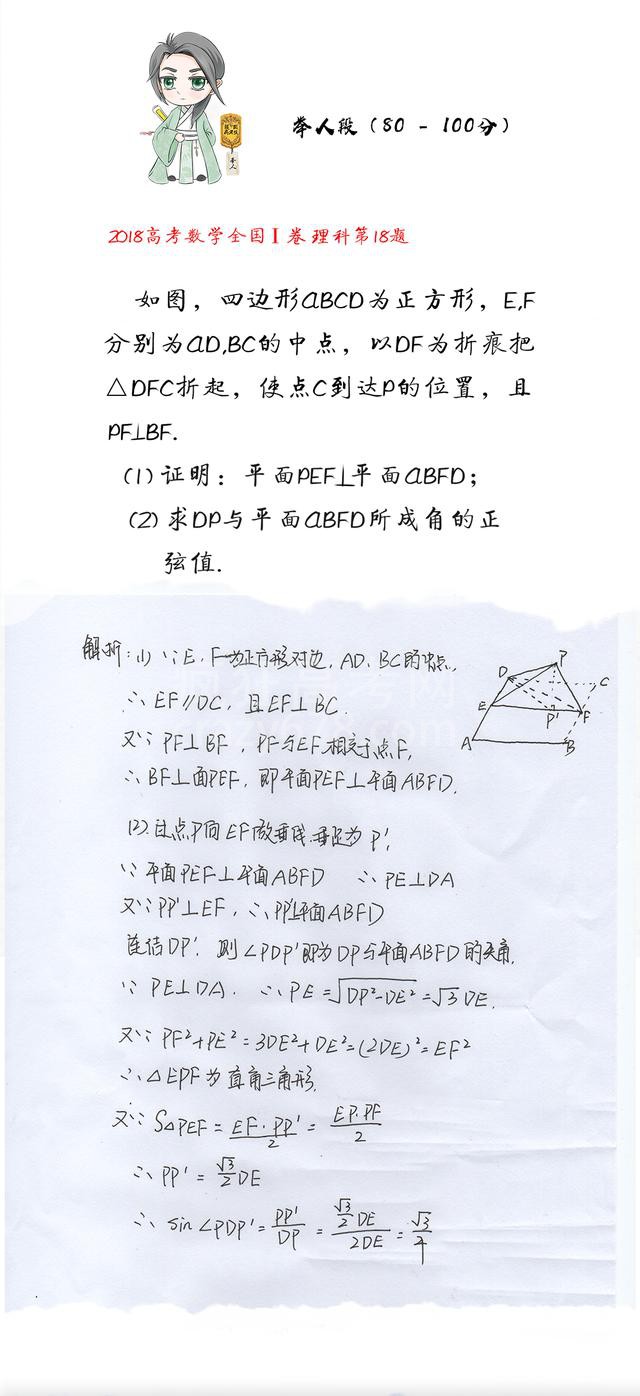 举人段（80 - 100分）
举人
2018高考数学全国I卷理科第18题
如图，四边形ABCD为正方形，E,F
分别为AD,BC的中点，以DF为折痕把
△DFC折起，使点C到达P的位置，且
PF⊥BF.
(1)证明：平面PEF⊥平面ABFD；
(2)求DP与平面ABFD所成角的正
弦值.
解析：(1) ∵E、F为正方形对边，AD、BC的中点，
∴EF∥DC，且EF⊥BC.
又∵PF⊥BF，PF与EF相交于点F，
∴BF⊥面PEF，即平面PEF⊥平面ABFD.
P
D
C
E
P'
F
A
B
(2)过点P向EF做垂线，垂足为P'，
∵平面PEF⊥平面ABFD ∴PE⊥DA
又∵PP'⊥EF，∴PP'⊥平面ABFD
连结DP'，则∠PDP'即为DP与平面ABFD的夹角.
∵PE⊥DA. ∴PE=√(DP²-DE²)=√3DE.
又∵PF²+PE²=3DE²+DE²=(2DE)²=EF²
∴△EPF为直角三角形.
又∵S△PEF=EF·PP'/2=EP·PF/2
∴PP'=√3/2DE
∴sin∠PDP'=PP'/DP=(√3/2DE)/2DE=√3/4